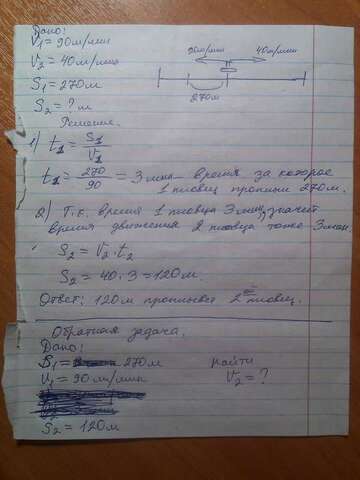 Дано:
V1 = 90м/мин
V2 = 40м/мин
S1 = 270м
S2 = ? м
90м/мин 40м/мин
270м
Решение.
1) t1 = S1/V1
t1 = 270/90 = 3 мин – время за которое
1 пловец проплыл 270м.
2) Т.к. время 1 пловца 3 мин, значит
время движения 2 пловца тоже 3 мин.
S2 = V2 · t2
S2 = 40 · 3 = 120м.
Ответ: 120м проплывёт 2ой пловец.
Обратная задача.
Дано:
S1 = 270м
найти
V1 = 90 м/мин
V2 = ?
S2 = 120м